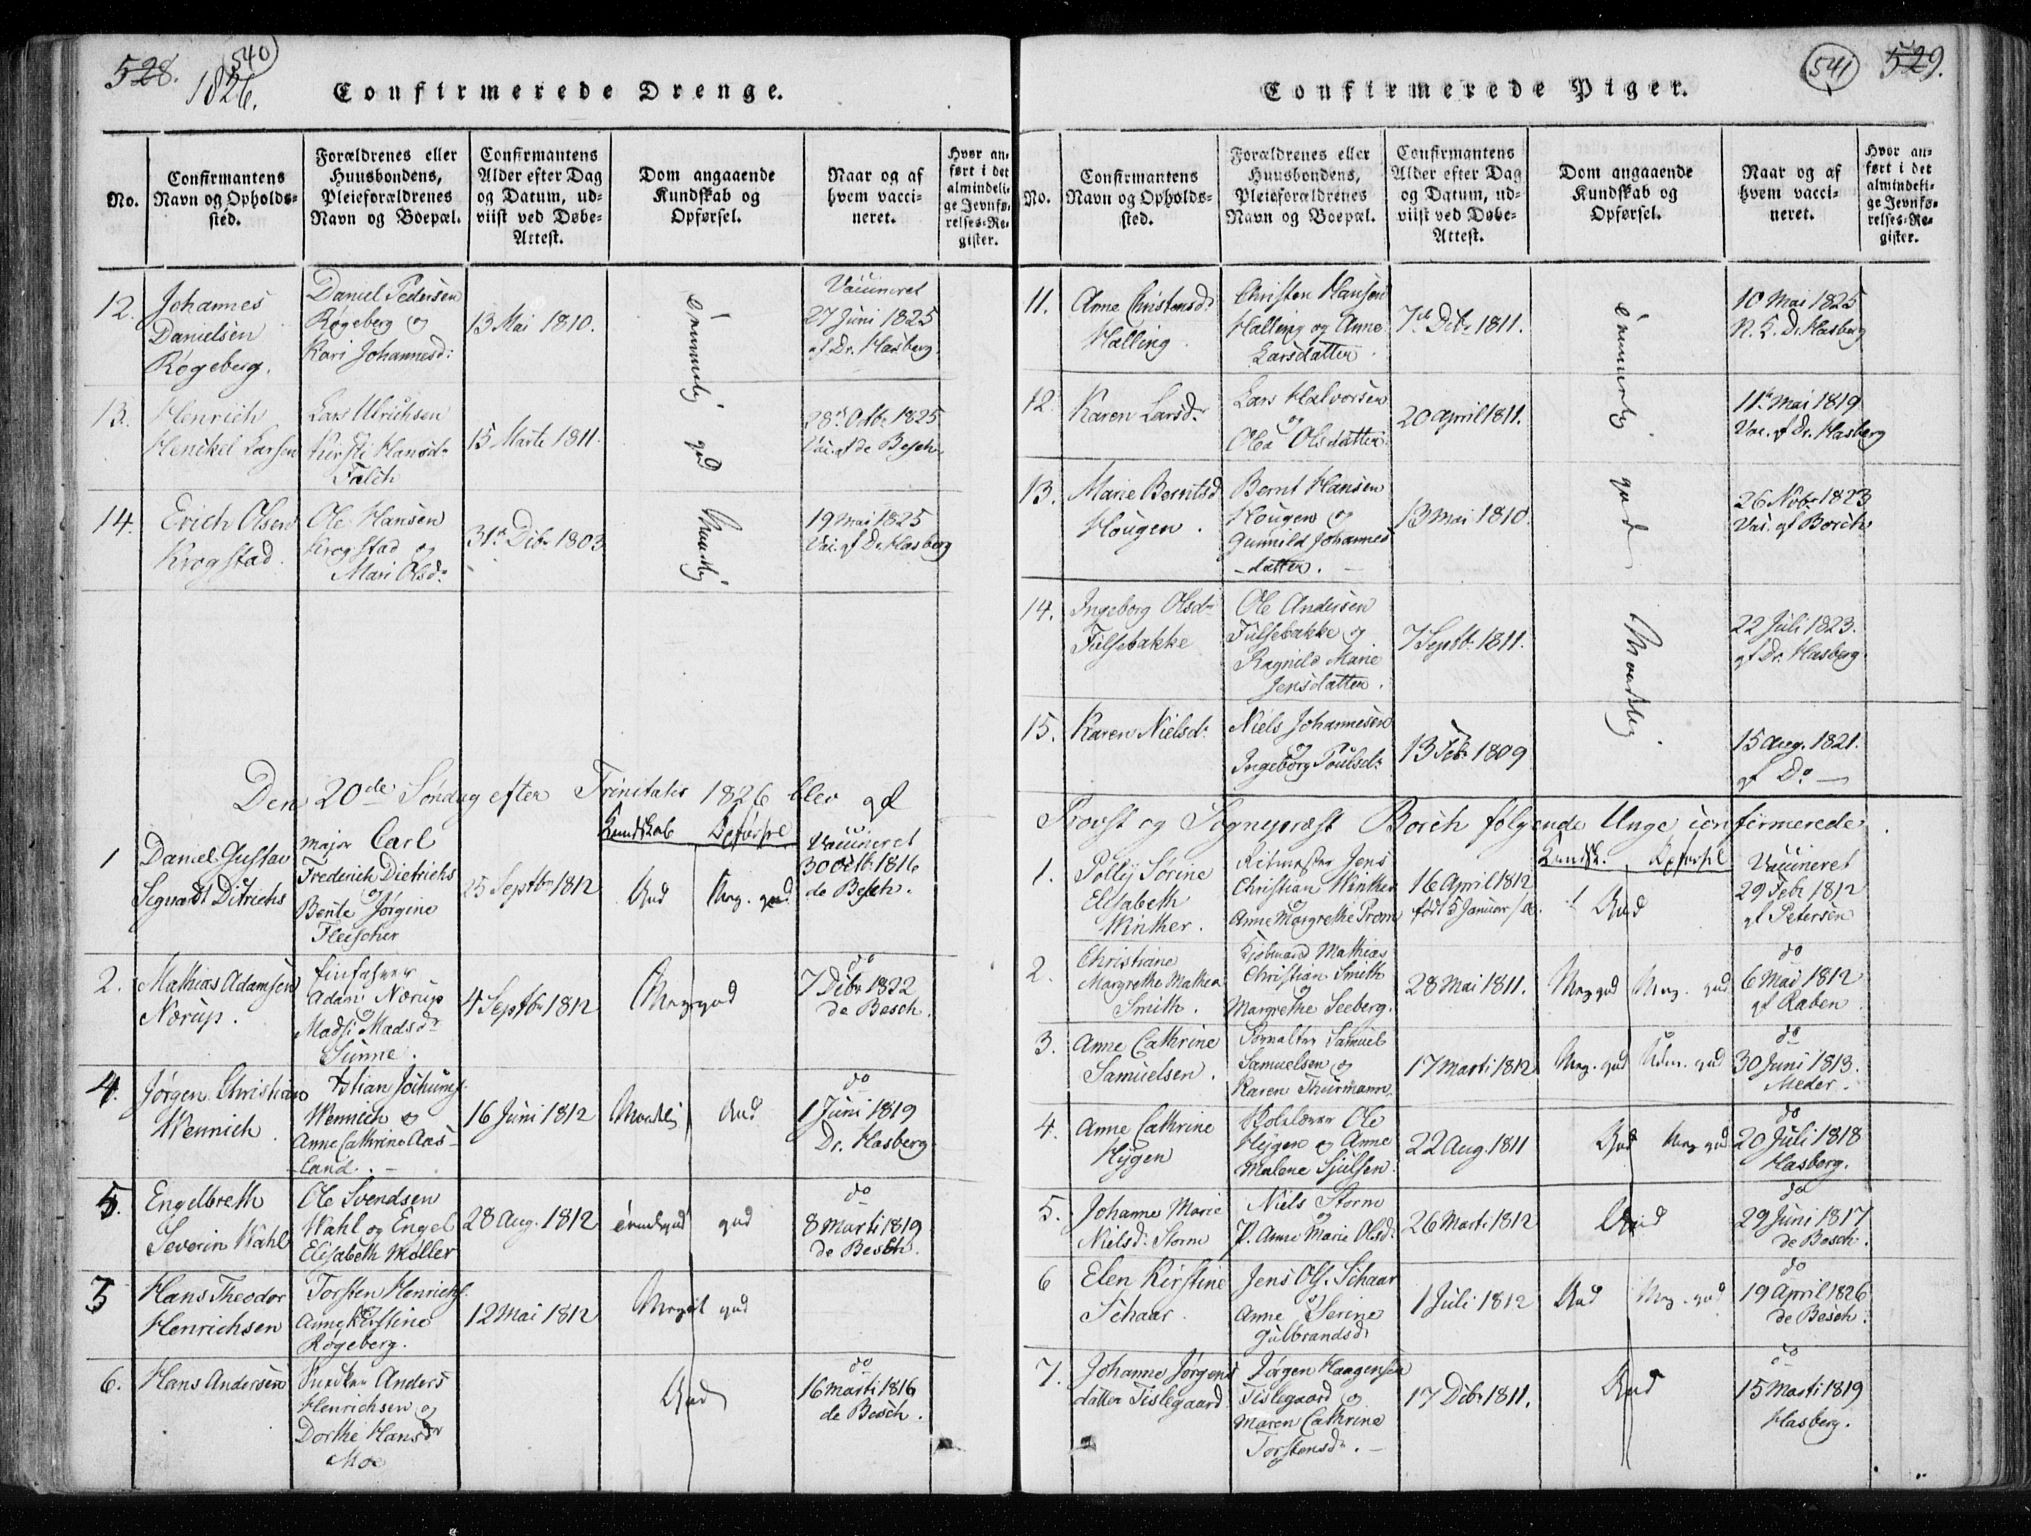 528.
540
1826.
Confirmerede Drenge.
No.
Confirmantens
Navn og Opholds-
sted.
Forældrenes eller
Huusbondens,
Pleieforældrenes
Navn og Boepæl.
Confirmantens
Alder efter Dag
og Datum, ud-
viist ved Døbe-
Attest.
Dom angaaende
Kundskab og
Opførsel.
Naar og af
hvem vacci-
neret.
Hvor an-
ført i det
almindeli-
ge Jevnfø-
relses-Re-
gister.
12.
Johannes
Danielsen
Røgeberg.
Daniel Pedersen
Røgeberg og
Kari Johannesd:
13 Mai 1810.
Vaccineret
27 Juni 1825
af Dr. Hasberg.
13.
Henrich
Henckel Larsen
Lars Ulrichsen
Kirsti Hansd
Falch
15 Marts 1811.
28 Octb. 1825
Vac. af de Besch.
14.
Erich Olsen
Krogstad.
Ole Hansen
Krogstad og
Mari Olsd:
31 Dcb. 1803
19 Mai 1825
Vac. af Dr. Hasberg
god
Maadelig
Den 20de Søndag efter Trinitatis 1826 blev af
Kundskab Opførsel
1
Daniel Gustav
Segvardt Ditrichs
Major Carl
Frederich Dietrichs
og
Bente Jørgine
Fleischer
25 Septbr 1812
God
Meg. god
Vaccineret
30 Octb. 1816
de Besch.
2.
Mathias Adamsen
Nørup.
Adam Nørup
og
Madsd
Sünne.
4 Septbr 1812
Meg god
do
7 Dcbr 1822
de Besch.
4.
Jørgen Christian
Wennich
Wennich og
Anne Cathrine Aas-
land.
16 Juni 1812
Maadelig
God
do
1 Juni 1819
Dr. Hasberg.
5.
Engelbreth
Severin Wahl
Ole Svendsen
Wahl og Engel
Elisabeth Møller
28 Aug. 1812
god
do
8 Marti 1819
de Besch.
3
Hans Theodor
Henrichsen
Torsten Henrichs.
Anne Kirstine
Røgeberg.
12 Mai 1812
Meget god
6.
Hans Andersen
Anders
Henrichsen og
Dorthe Hansdr
Moe
God
do
16 Marti 1816
de Besch.
541
529.
Confirmerede Piger.
No.
Confirmantens
Navn og Opholds-
sted.
Forældrenes eller
Huusbondens,
Pleieforældrenes
Navn og Boepæl.
Confirmantens
Alder efter Dag
og Datum, ud-
viist ved Døbe-
Attest.
Dom angaaende
Kundskab og
Opførsel.
Naar og af
hvem vacci-
neret.
Hvor an-
ført i det
almindeli-
ge Jevnfø-
relses-Re-
gister.
11.
Anne Christensd:
Halling.
Christen Hansen
Halling og Anne
Larsdatter.
7 Dcb. 1811.
10 Mai 1825
Dr. Hasberg
12.
Karen Larsd.
Lars Halvorsen
og
Olea Olsdatter
20 April 1811.
11 Mai 1819
Vac. af Dr. Hasberg
13.
Marie Berntsd.
Hougen.
Bernt Hansen
Hougen og
Gunnild Johannes
-datter.
13 Mai 1810.
26 Nvb. 1823
Vac. af Borch
14.
Ingeborg Olsd
Tulsebakke
Ole Andersen
Tulsebakke og
Ragnild Marie
Jensdatter.
7 Septb. 1811.
22 Juli 1823.
af Dr. Hasberg.
15.
Karen Nielsd.
Niels Johannesen
og
Ingeborg Poulsd:
13 Feb. 1809
15 Aug. 1821.
af Do
god
Maadelig
Provst og Sognepræst Borch følgende Unge confirmerede.
Kundsk. Opførsel
1.
Polly Sørine
Elisabeth
Winther.
Ritmester Jens
Christian Winther
og
Anne Margrethe Prom
16 April 1812
født 5 Januar
God
Vaccineret
29 Feb. 1812
af Petersen
2.
Christiane
Margrethe Mathea
Smith.
Kjøbmand Mathias
Christian Smith
og
Margrethe Seeberg.
28 Mai 1811.
Meg god
Meg. god
do
6 Mai 1812
af Raben
3.
Anne Cathrine
Samuelsen.
Samuel
Samuelsen og
Karen Thurmann.
17 Marti 1812
Meg. god
god
do
30 Juni 1813.
Meder.
4.
Anne Cathrine
Hygen
Ole
Hygen og Anne
Malene Sjulsen
22 Aug. 1811
God
Meg god
do
20 Juli 1818
Hasberg.
5.
Johanne Marie
Nielsd. Storm
Niels Storm
og
P. Anne Marie Olsd:
26 Marti 1812
God
do
29 Juni 1817
de Besch.
6
Elen Kirstine
Schaar.
Jens Ols. Schaar
og
Anne Serine
Gulbrandsd
1 Juli 1812
God
Meg. god
do
19 April 1826
de Besch.
7.
Johanne Jørgens
datter Tislegaard
Jørgen Haagensen
Tislegaard og
Maren Cathrine
Torstensd.
17 Dcb. 1811.
God
do
15 Marti 1819
Hasberg.